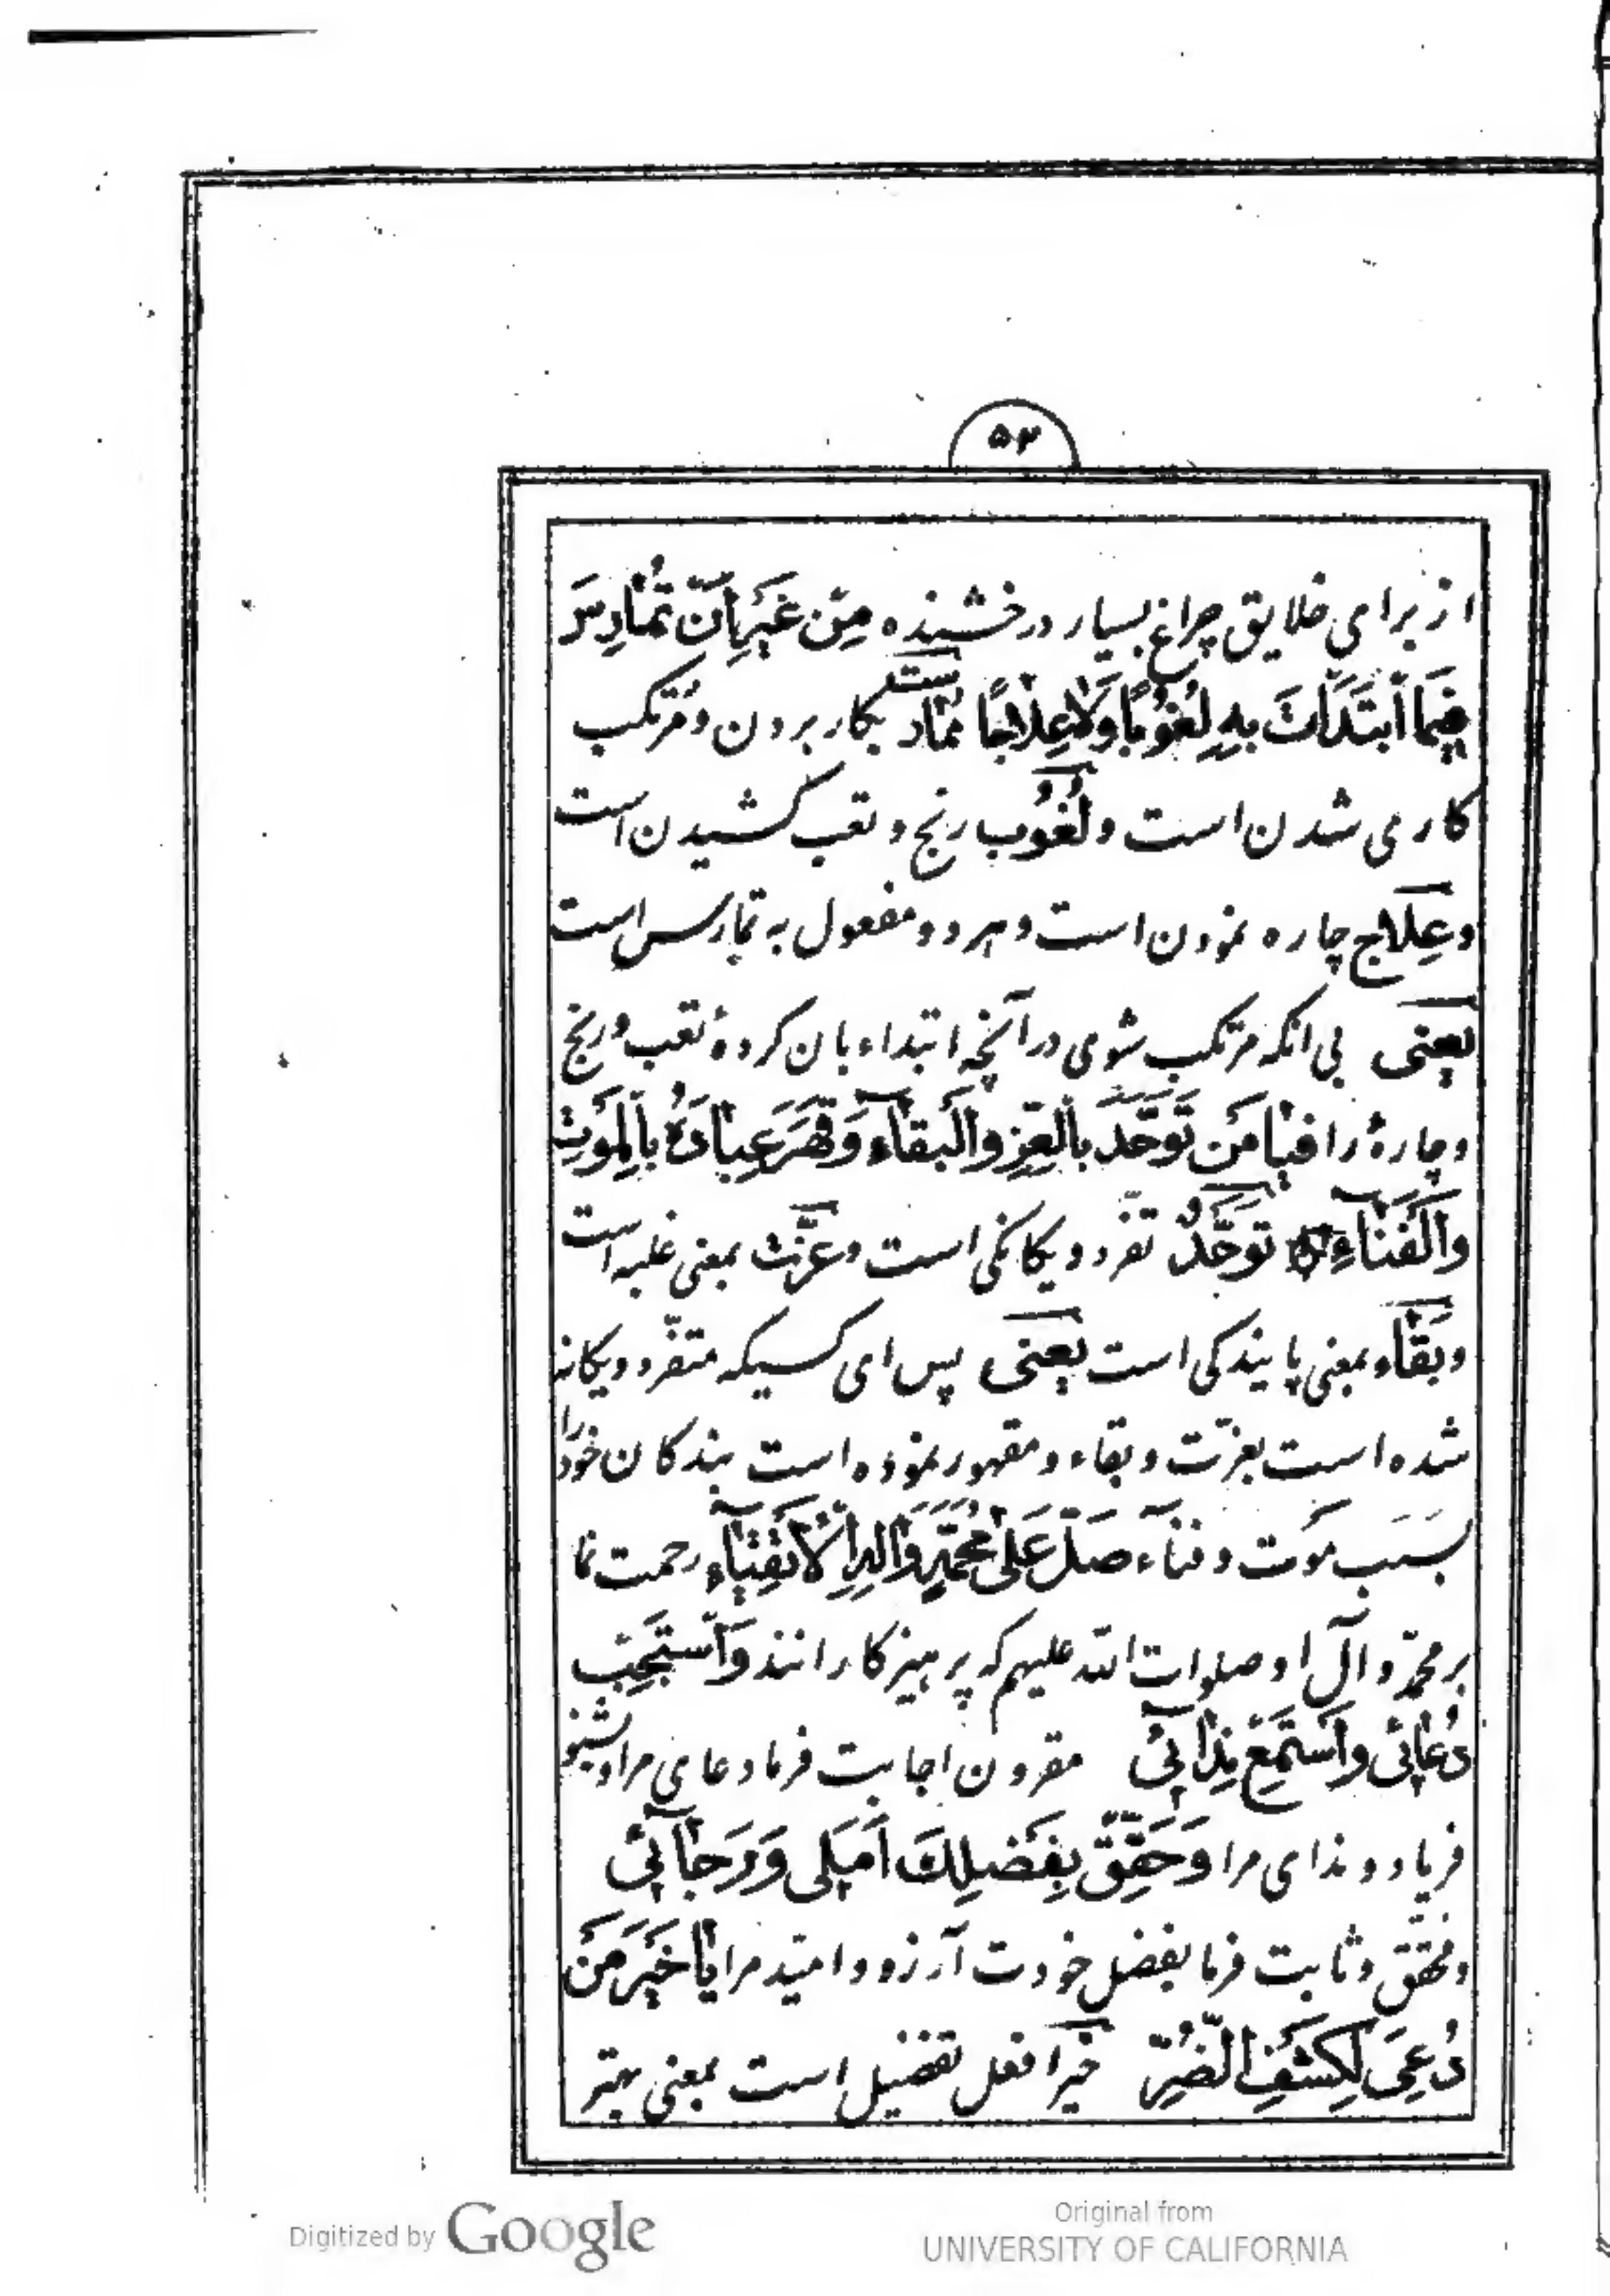 ۵۳
از برای خلایق چراغ بسیار درخشنده مِنْ غَیْرِ اَنْ تُمٰارِسَ
فِیمَا ٱبْتَدَاْتَ بِهِ لُغُوبًا وَلٰا عِلٰاجًا مُمٰارست بکار بردن و مُرتکب
کاری شدن است و لُغُوب رنج و تعب کشیدن است
و عِلٰاج چاره نمودن است و هر دو مفعول به تمارس است
یعنی بی انکه مرتکب شوی در آنچه ابتداء بان کردهٔ تعب و رنج
و چارهٔ را فَیٰا مَنْ تَوَحَّدَ بِالْعِزِّ وَالْبَقٰاءِ وَقَهَرَ عِبٰادَهُ بِالْمَوْتِ
وَالْفَنٰاءِ تَوَحُّدْ تفرّد و یکانکی است و عزّت بمعنی غلبه است
و بَقٰاء بمعنی پایندکی است یعنی پس ای کسیکه متفرّد و یکانه
شده است بعزّت و بقاء و مقهور نموده است بندکان خود را
بسَبَب مَوت و فنآء صَلِّ عَلٰی مُحَمَّدٍ وَاٰلِهِ الْاَتْقِیٰآءِ رحمت نما
بر محمّد و آل او صلوات الله علیهم که پرهیزکارانند وَاسْتَجِبْ
دُعٰائی وَاسْتَمِعْ نِدٰائی مقرون اجابت فرما دعای مرا و بشنو
فریاد و ندای مرا وَحَقِّقْ بِفَضْلِكَ اَمَلی وَرَجٰآئی
و محقّق و ثابت فرما بفضل خودت آرزو و امّید مرا یٰا خَیْرَ مَنْ
دُعِیَ لِکَشْفِ الضُّرِّ خیر افعل تفضیل است بمعنی بهتر
Digitized by Google
Original from
UNIVERSITY OF CALIFORNIA